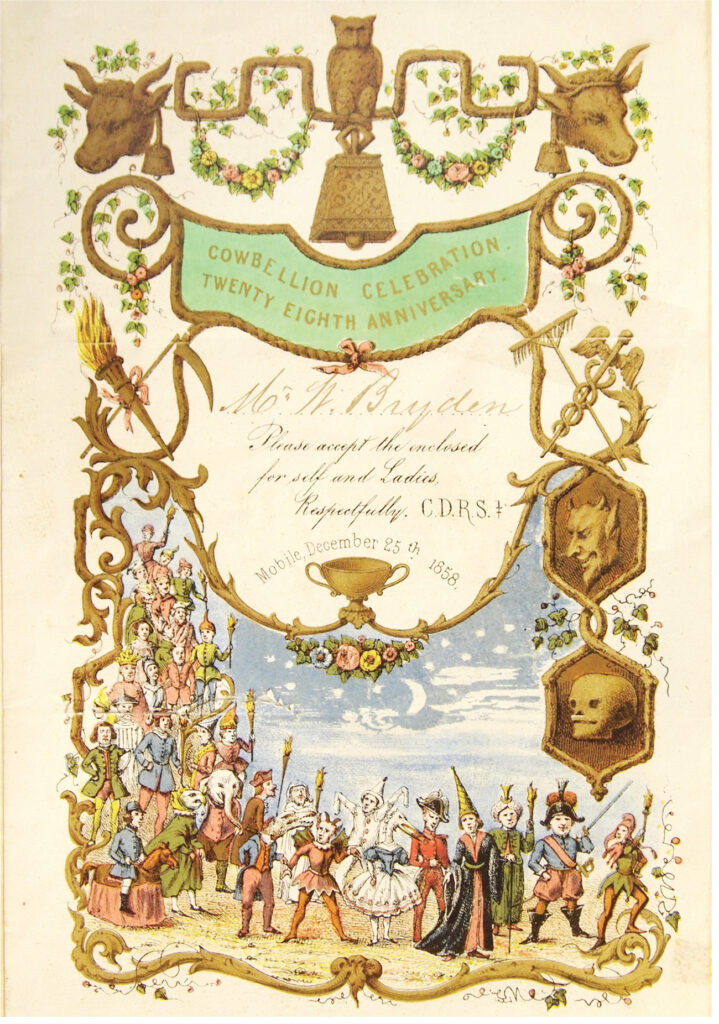 COWBELLION CELEBRATION.
TWENTY EIGHTH ANNIVERSARY.
Mr. W. Bryden
Please accept the enclosed
for self and Ladies.
Respectfully, C.D.R.S.
Mobile, December 25th 1858.